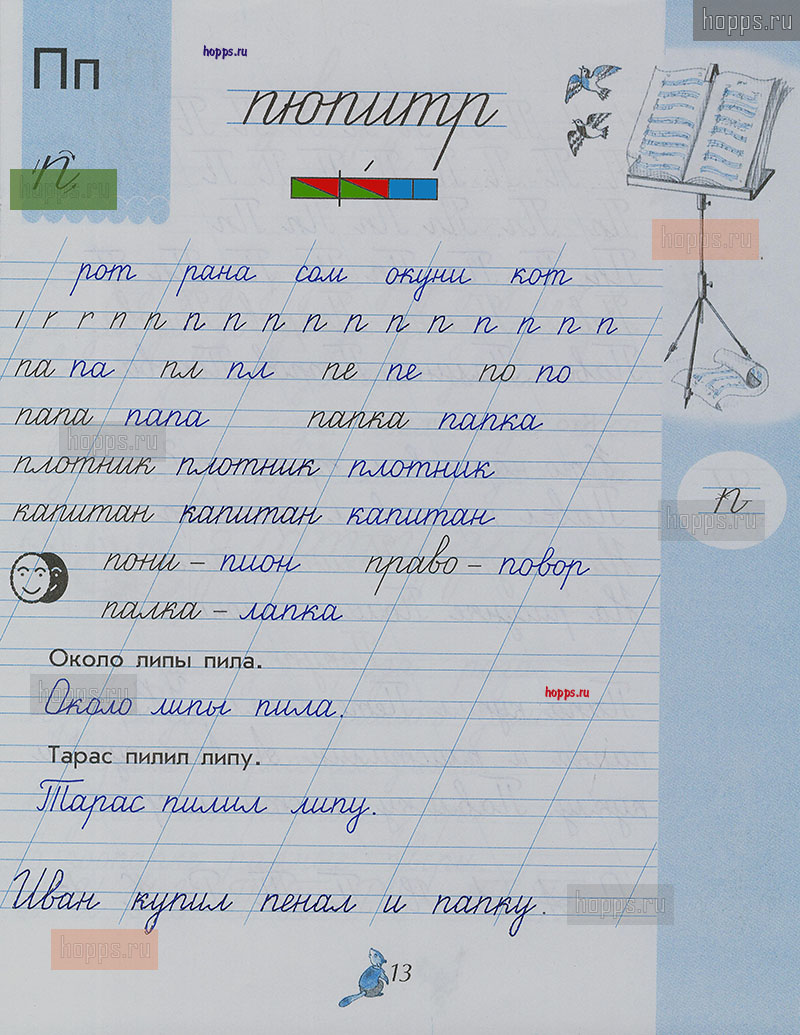 hopps.ru
Пп
hopps.ru
пюпитр
п
hopps.ru
hopps.ru
рот рана сом окуни кот
п п п п п п п п п п п п
па па пл пл пе пе по по
папа папа папка папка
hopps.ru
плотник плотник плотник
п
hopps.ru
капитан капитан капитан
пони – пион право – повор
палка – лапка
Около липы пила.
hopps.ru
hopps.ru
Около липы пила.
Тарас пилил липу.
Тарас пилил липу.
Иван купил пенал и папку.
hopps.ru
hopps.ru
13